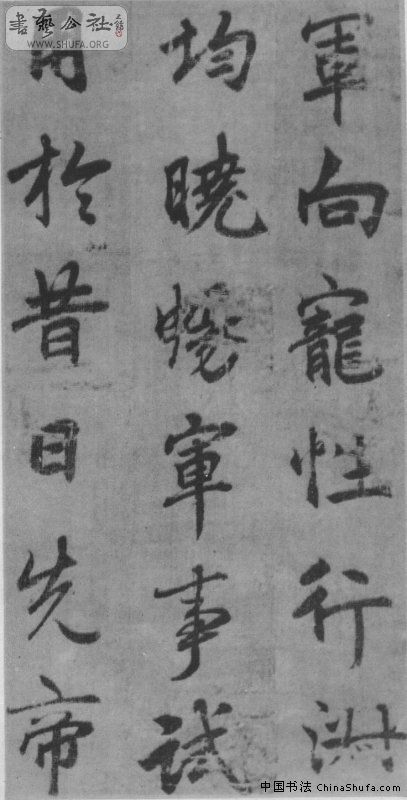 軍向寵性行淑
均曉暢軍事試
用於昔日先帝
書藝公社
WWW.SHUFA.ORG
中国书法 ChinaShufa.com